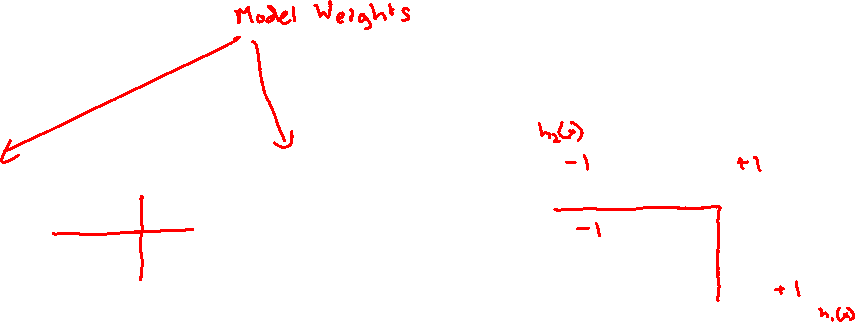 Model Weights
h₂(x)
-1 +1
-1
+1
h₁(x)